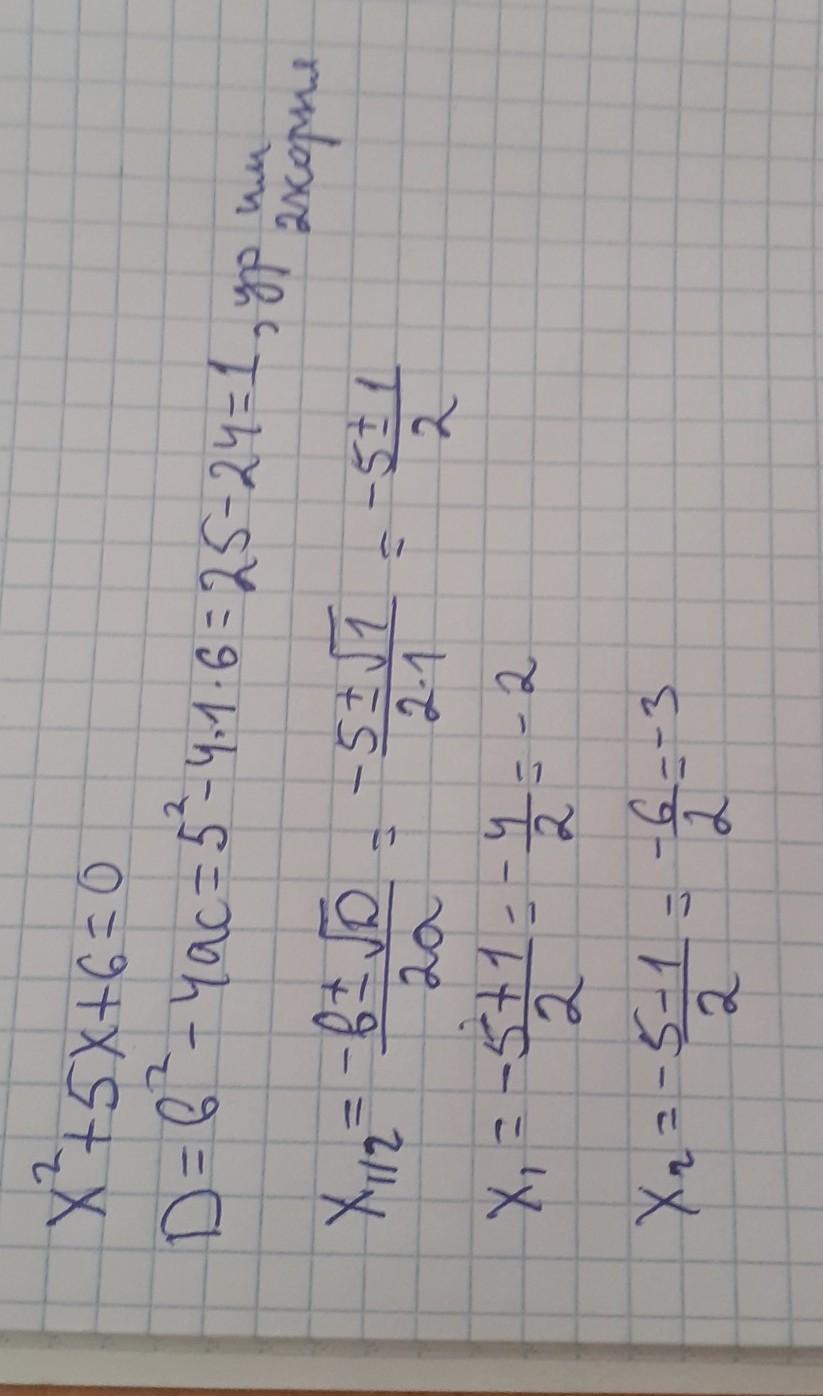 x² + 5x + 6 = 0
D = b² - 4ac = 5² - 4·1·6 = 25 - 24 = 1, ур им
2 корня
x₁/₂ = -b ± √D / 2a = -5 ± √1 / 2·1 = -5 ± 1 / 2
x₁ = -5 + 1 / 2 = -4 / 2 = -2
x₂ = -5 - 1 / 2 = -6 / 2 = -3